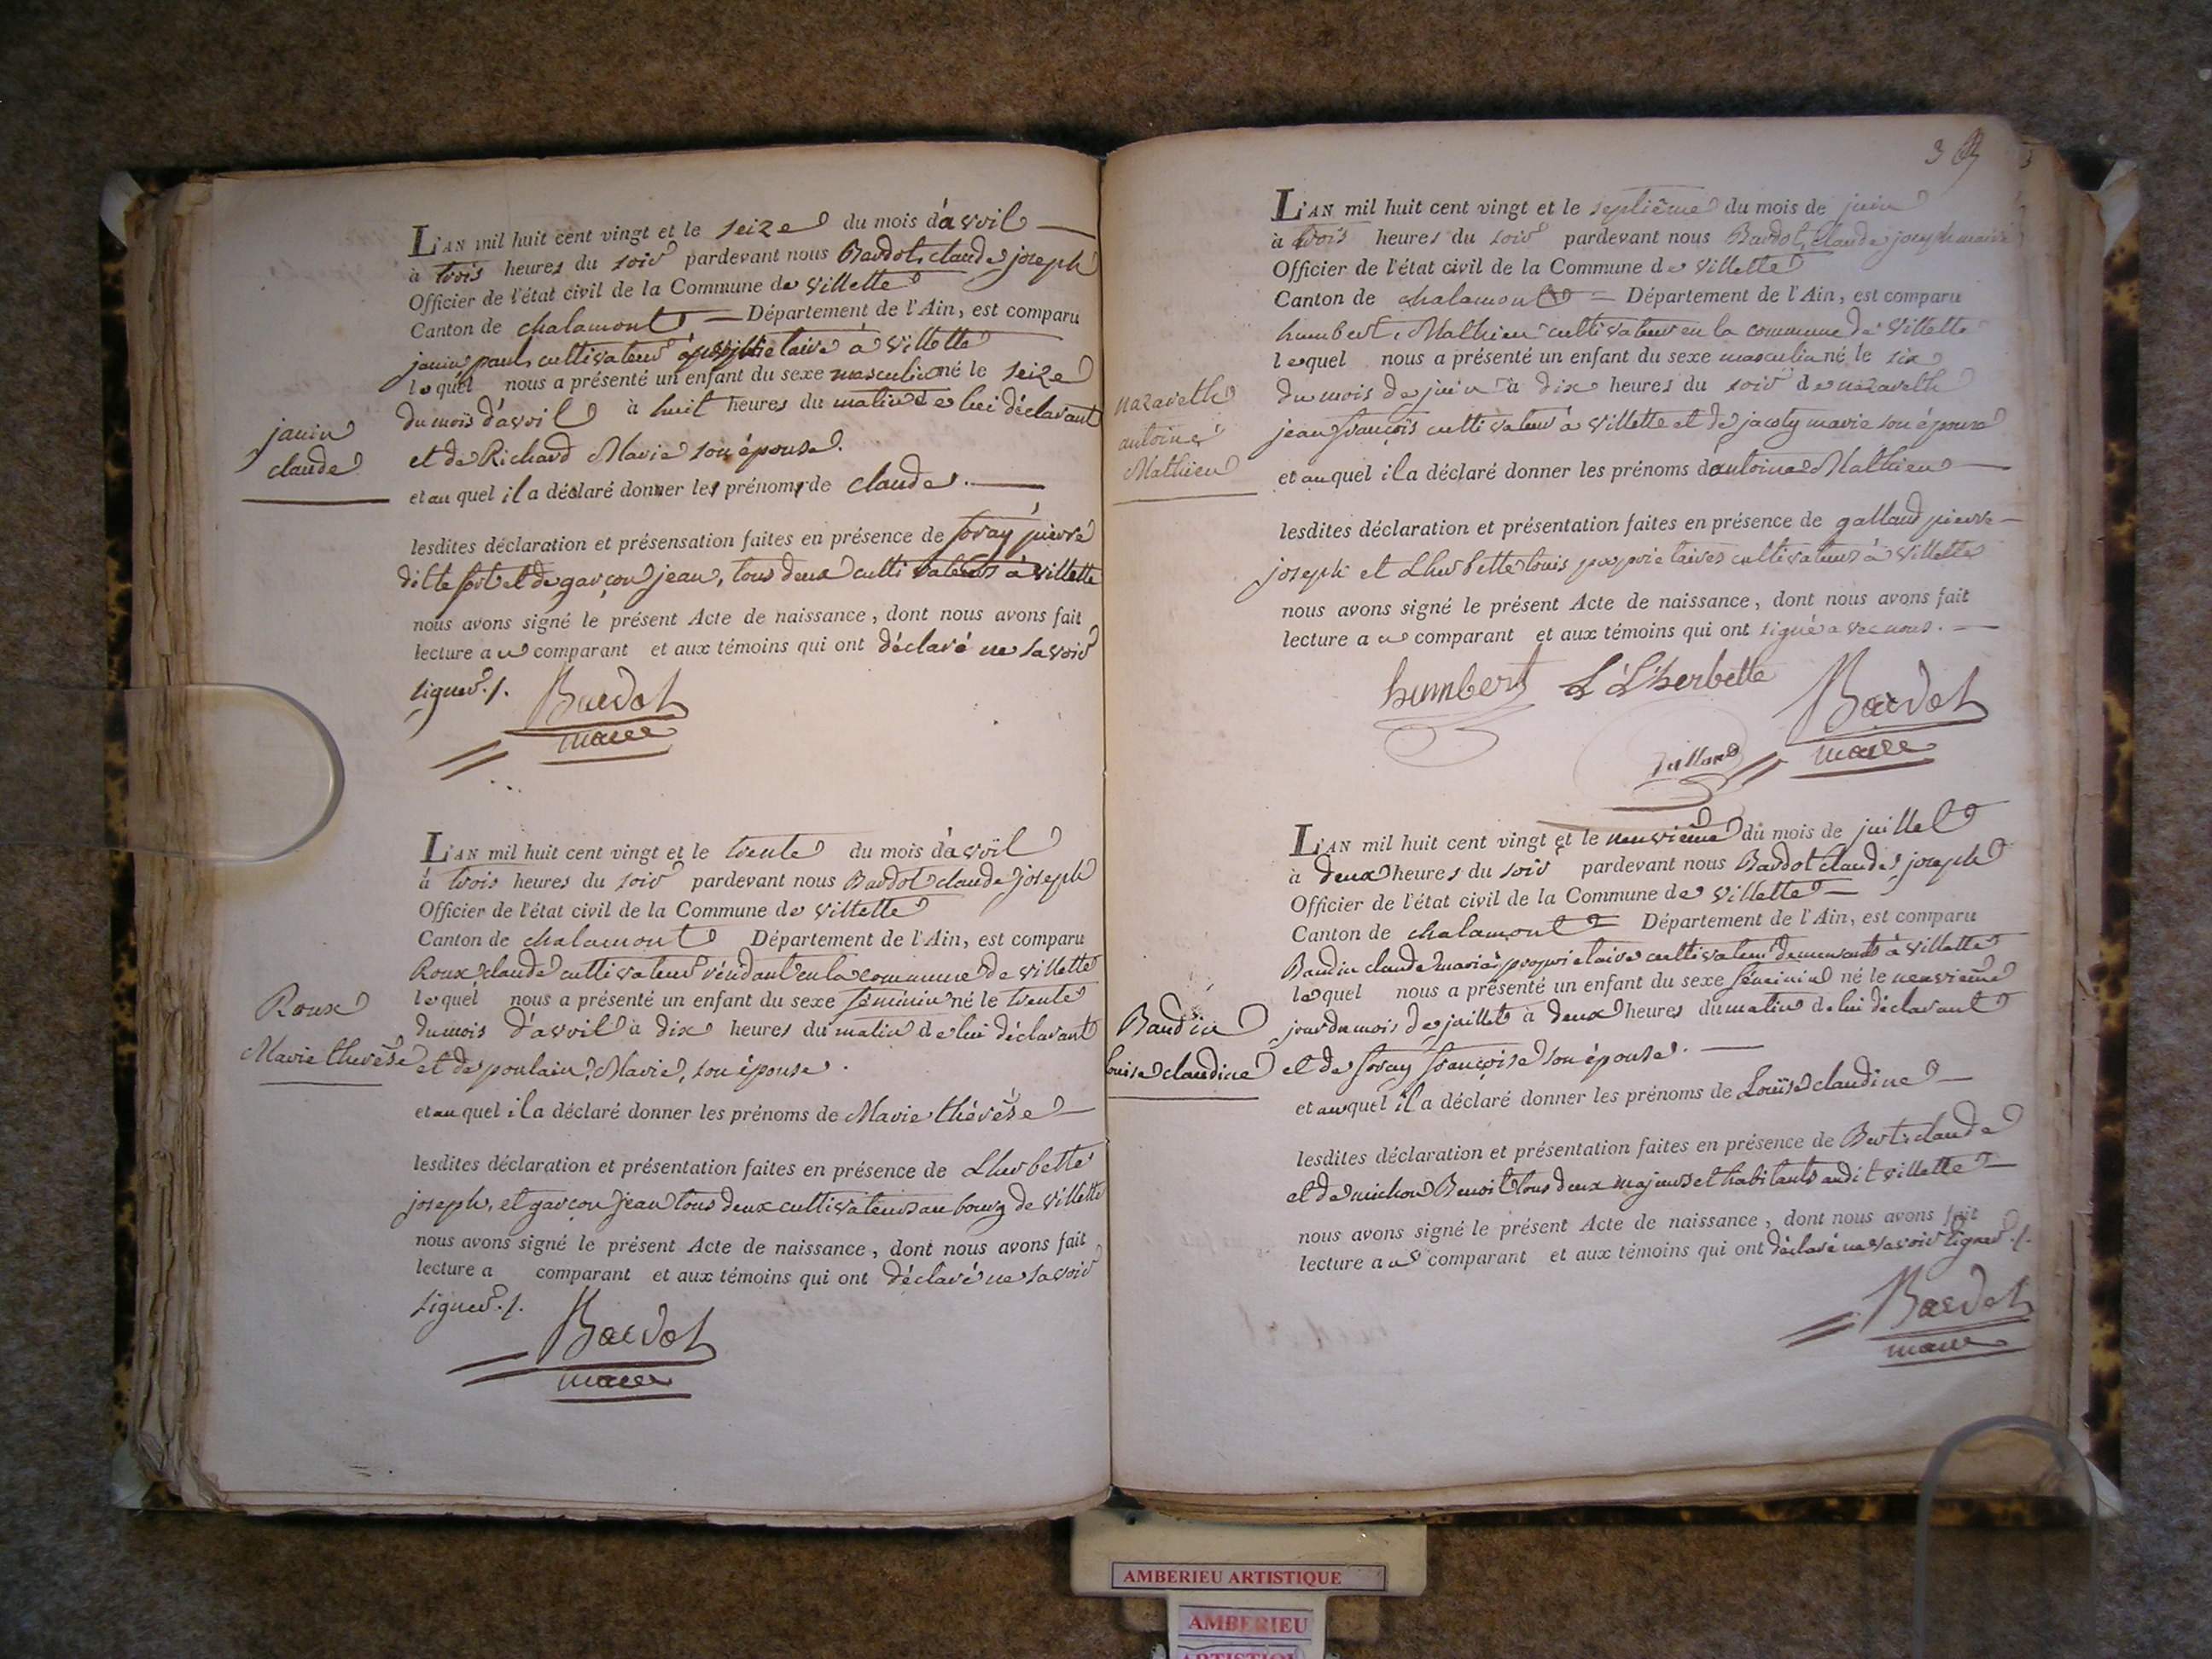 L'AN mil huit cent vingt et le seize du mois d'avril
à trois heures du soir pardevant nous Bardot, claude joseph
Officier de l'état civil de la Commune de villette
Canton de chalamont Département de l'Ain, est comparu
janin paul, cultivateur propriétaire à villette
lequel nous a présenté un enfant du sexe masculin né le seize
du mois d'avril à huit heures du matin de lui déclarant
et de Richard Marie son épouse.
janin
claude
et au quel il a déclaré donner les prénoms de claude.
lesdites déclaration et présensation faites en présence de foray pierre
dit le fort et de garçon jean, tous deux cultivateurs à villette
nous avons signé le présent Acte de naissance, dont nous avons fait
lecture au comparant et aux témoins qui ont déclaré ne savoir
signer./.
Bardot
maire
L'AN mil huit cent vingt et le trente du mois d'avril
à trois heures du soir pardevant nous Bardot claude joseph
Officier de l'état civil de la Commune de villette
Canton de chalamont Département de l'Ain, est comparu
Roux claude cultivateur résidant en la commune de villette
lequel nous a présenté un enfant du sexe féminin né le trente
du mois d'avril à dix heures du matin de lui déclarant
Roux
Marie thérèse
et de poulain, Marie, son épouse.
et au quel il a déclaré donner les prénoms de Marie thérèse
lesdites déclaration et présentation faites en présence de Lherbette
joseph, et garçon jean tous deux cultivateurs au bourg de villette
nous avons signé le présent Acte de naissance, dont nous avons fait
lecture a comparant et aux témoins qui ont déclaré ne savoir
signer./.
Bardot
maire
3
L'AN mil huit cent vingt et le septième du mois de juin
à trois heures du soir pardevant nous Bardot, claude joseph maire
Officier de l'état civil de la Commune de villette
Canton de chalamont Département de l'Ain, est comparu
humbert, Mathieu cultivateur en la commune de villette
lequel nous a présenté un enfant du sexe masculin né le six
du mois de juin à dix heures du soir de nazareth
jean françois cultivateur à villette et de jacoty marie son épouse
nazareth
antoine
Mathieu
et au quel il a déclaré donner les prénoms d'antoine Mathieu
lesdites déclaration et présentation faites en présence de galland pierre
joseph et Lherbette louis propriétaires cultivateurs à villette
nous avons signé le présent Acte de naissance, dont nous avons fait
lecture au comparant et aux témoins qui ont signé avec nous.
humbert L Lherbette Bardot
maire
L'AN mil huit cent vingt et le neuvième du mois de juillet
à deux heures du soir pardevant nous Bardot claude, joseph
Officier de l'état civil de la Commune de villette
Canton de chalamont Département de l'Ain, est comparu
Baudin claude marie propriétaire cultivateur demeurant à villette
lequel nous a présenté un enfant du sexe féminin né le neuvième
jour du mois de juillet à deux heures du matin de lui déclarant
Baudin
louise claudine
et de foray françoise son épouse.
et au quel il a déclaré donner les prénoms de Louïse claudine
lesdites déclaration et présentation faites en présence de Bert, claude
et de michon Benoit tous deux majeurs et habitants audit villette
nous avons signé le présent Acte de naissance, dont nous avons fait
lecture au comparant et aux témoins qui ont déclaré ne savoir signer./.
Bardot
maire
AMBERIEU ARTISTIQUE
AMBERIEU
ARTISTIQUE